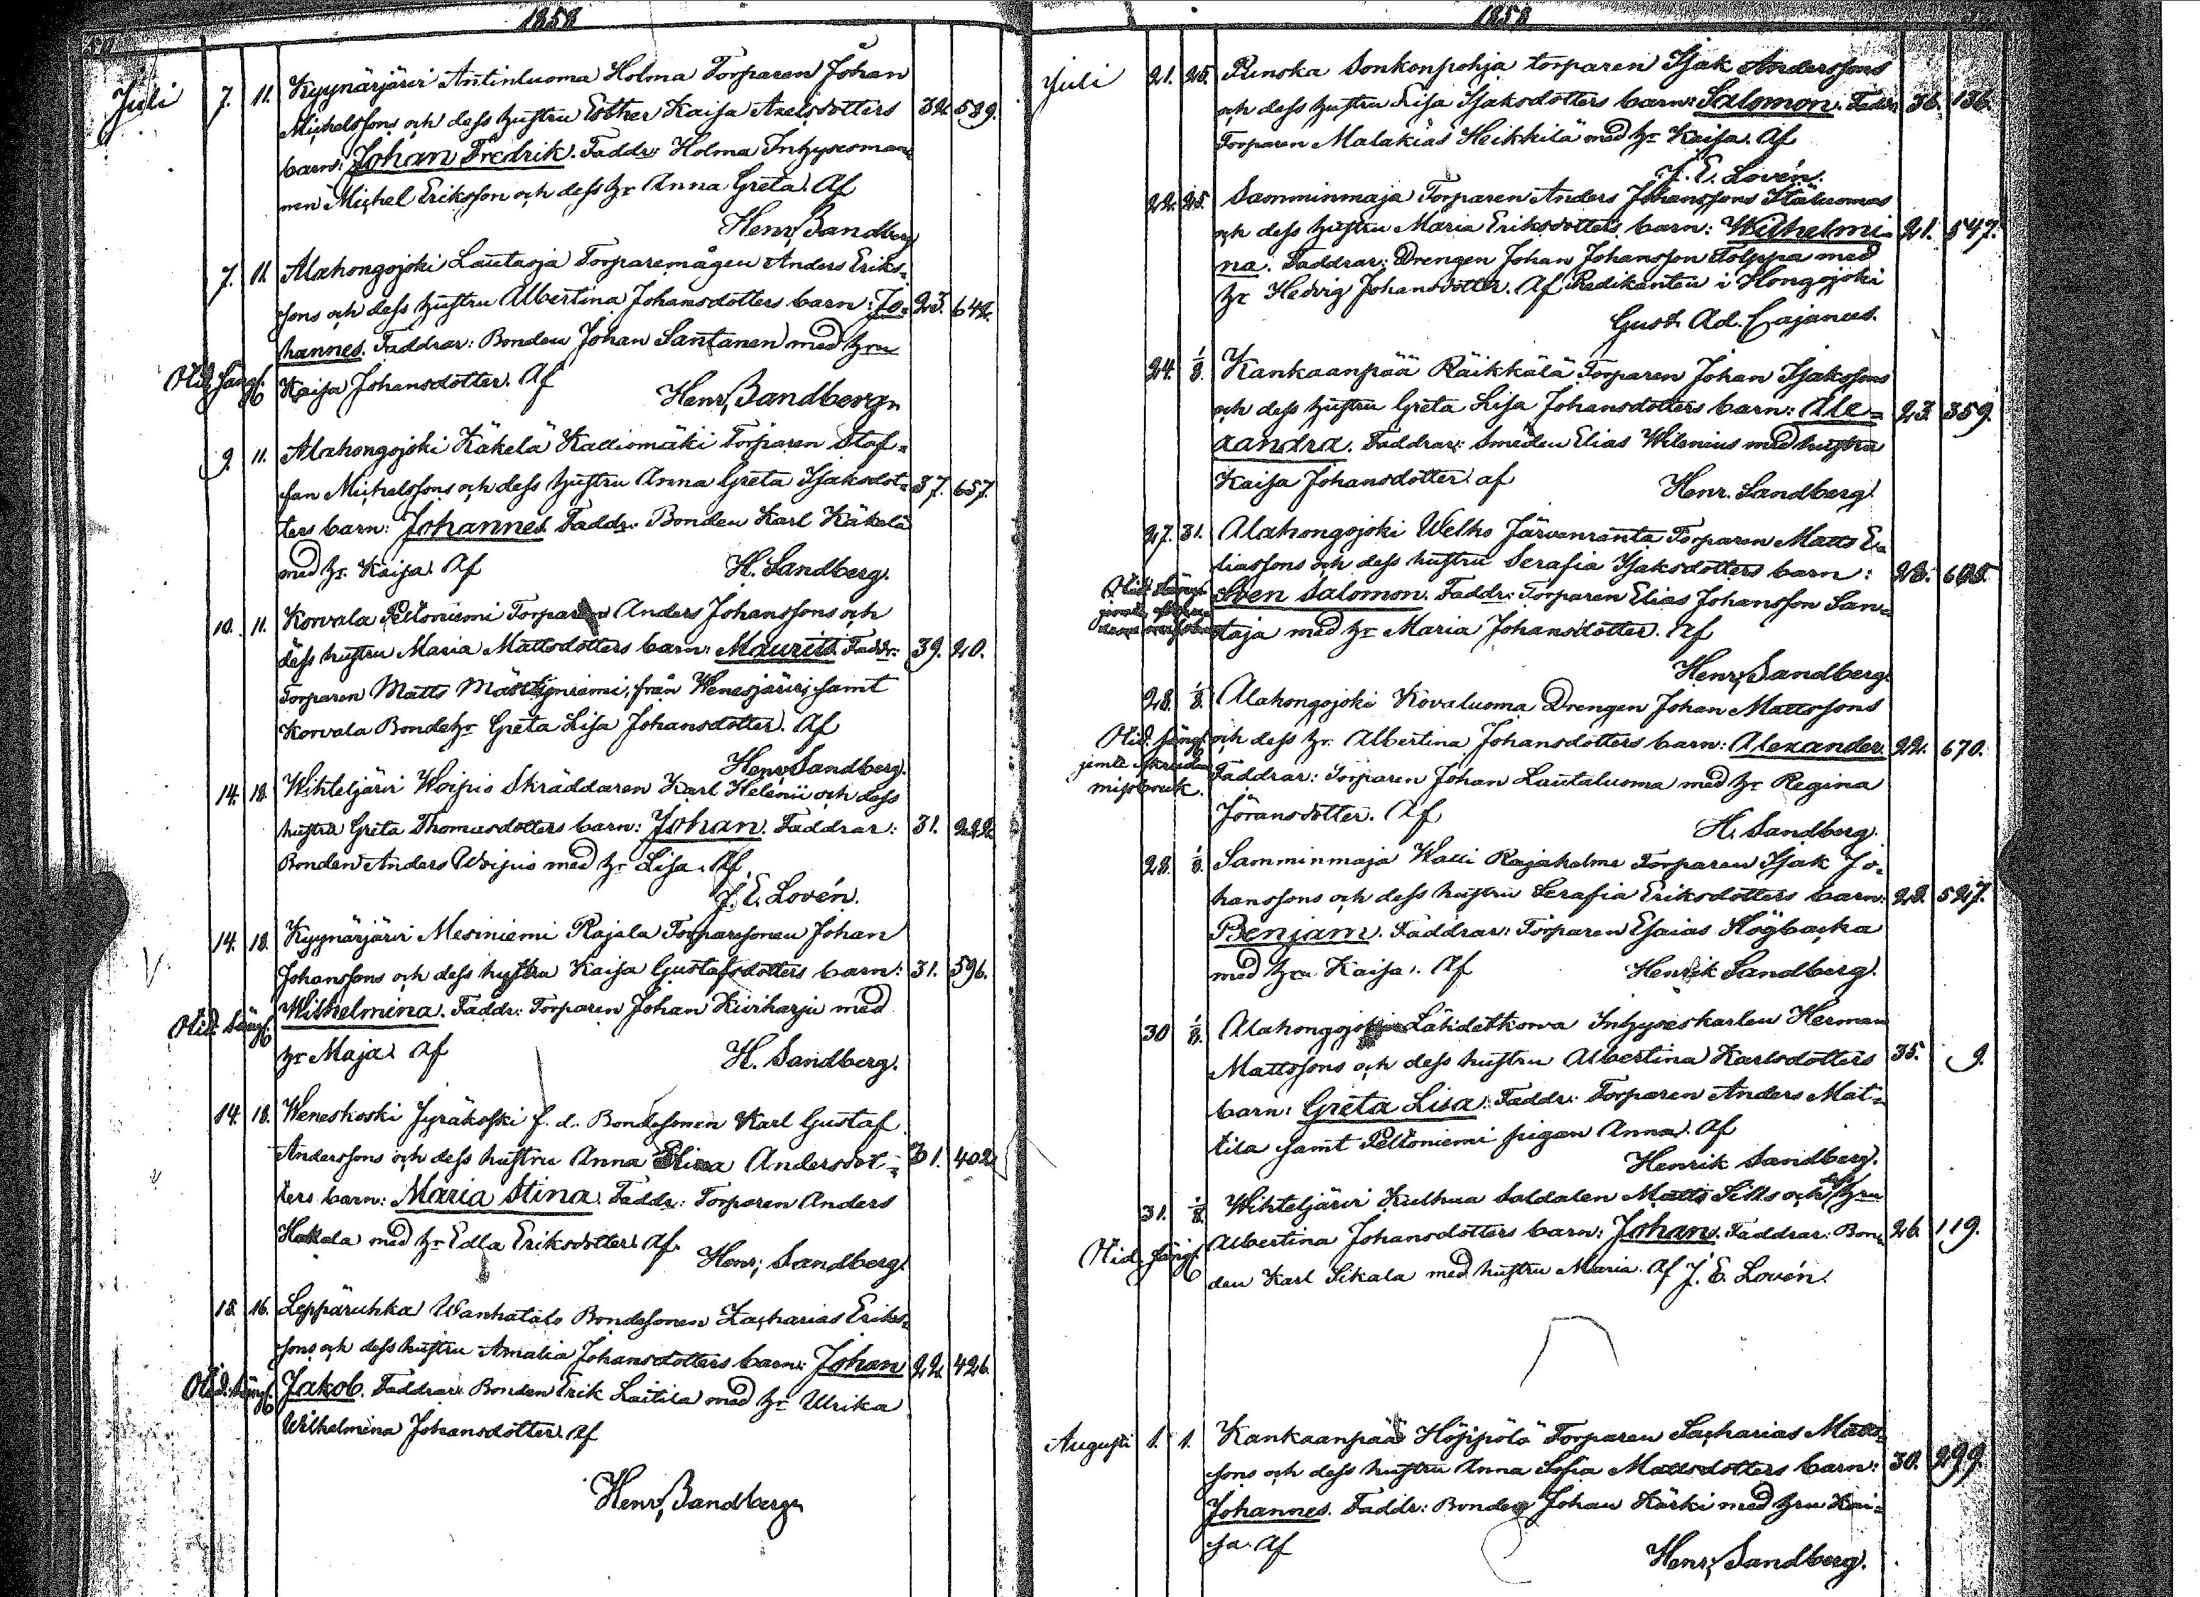 1858
Juli 7. 11. Kyynärjärvi Antinluoma Holma Torparen Johan
Michelssons och dess hustru Esther Kaisa Axelsdotters 32. 589.
barn: Johan Fredrik. Faddr: Holma Inhysesman
nen Michel Eriksson och dess hr Anna Greta. Af
Henr. Sandberg
7. 11. Alahongojoki Lautaoja Torparemågen Anders Eriks-
sons och dess hustru Albertina Johansdotters barn: Jo- 23. 642.
hannes. Faddrar: Bonden Johan Santanen med hru
Kaisa Johansdotter. Af
Henr. Sandberg
9. 11. Alahongojoki Käkelä Kalliomäki Torparen Staf-
fan Michelssons och dess hustru Anna Greta Isaksdot- 37. 657.
ters barn: Johannes. Faddr: Bonden Karl Käkelä
med hr. Kaisa. Af H. Sandberg.
10. 11. Korvala Peltoniemi Torparen Anders Johanssons och
dess hustru Maria Mattsdotters barn: Maurits. Faddr: 39. 20.
Torparen Matts från Wenesjärvi, samt
Korvala Bondehr Greta Lisa Johansdotter. Af
Henr. Sandberg.
14. 18. Wihteljärvi Woipio Skräddaren Karl Helenii och dess
hustru Greta Thomasdotters barn: Johan. Faddrar: 31. 222.
Bonden Anders Woipio med hr Lisa. Af
J. E. Lovén.
14. 18. Kyynärjärvi Mesiniemi Rajala Torparesonen Johan
Johanssons och dess hustru Kaisa Gustafsdotters barn: 31. 596.
Wilhelmina. Faddr: Torparen Johan Kiviharju med
hr Maja. Af H. Sandberg.
14. 18. Weneskoski Jyräkoski f. d. Bondesonen Karl Gustaf
Anderssons och dess hustru Anna Andersdot- 31. 402.
ters barn: Maria Stina. Faddr: Torparen Anders
Hakala med hr Edla Eriksdotter. Af
Henr. Sandberg.
15. 16. Leppäruhka Wanhatalo Bondesonen Zacharias Eriks-
sons och dess hustru Amalia Johansdotters barn: Johan 22. 426.
Jakob. Faddrar: Bonden Erik Laitila med hr Ulrika
Wilhelmina Johansdotter. Af
Henr. Sandberg
1858
Juli 21. 25. Punoka Sonkonpohja torparen Isak Anderssons
och dess hustru Lisa Isaksdotters barn: Salomon. Faddr: 36. 136.
Torparen Malakias Heikkilä med hr Kaisa. Af
J. E. Lovén.
22. 25. Samminmaja Torparen Anders Johanssons
och dess hustru Maria Eriksdotters barn: Wilhelmi- 21. 547.
na. Faddrar: Drengen Johan Johansson Tolppa med
hr Hedvig Johansdotter. Af Predikanten i Hongojoki
Gust. Ad. Cajanus.
24. 1/8. Kankaanpää Räikkälä Torparen Johan Isakssons
och dess hustru Greta Lisa Johansdotters barn: Ale- 23. 359.
xandra. Faddrar: Smeden Elias Wilenius med hustru
Kaisa Johansdotter. af Henr. Sandberg.
27. 31. Alahongojoki Welho Järvenranta Torparen Matts E-
liassons och dess hustru Serafia Isaksdotters barn:
Sven Salomon. Faddr: Torparen Elias Johansson San-
taja med hr Maria Johansdotter. Af
Henr. Sandberg.
28. 1/8. Alahongojoki Kovaluoma Drengen Johan Mattssons
och dess hr. Albertina Johansdotters barn: Alexander. 22. 670.
Faddrar: Torparen Johan Lautaluoma med hr Regina
Jöransdotter. Af H. Sandberg.
28. 1/8. Samminmaja Walli Rajaholma Torparen Isak Jo-
hanssons och dess hustru Serafia Eriksdotters barn: 22. 527.
Benjam. Faddrar: Torparen Esaias Högbacka
med hru Kaisa. Af Henrik Sandberg.
30 1/8. Alahongojoki Lähdetkorva Inhyseskarlen Herman
Mattssons och dess hustru Albertina Karlsdotters 35. 9.
barn: Greta Lisa. Faddr: Torparen Anders Mat-
tila samt Peltoniemi pigan Anna. Af
Henrik Sandberg.
31. 1/8. Wihteljärvi Kulhua Soldaten Matts Silts och dess hru
Albertina Johansdotters barn: Johan. Faddrar: Bon- 26. 119.
den Karl Sikala med hustru Maria. Af J. E. Lovén.
Augusti 1. 1. Kankaanpää Höjipölö Torparen Sacharias Matts-
sons och dess hustru Anna Sofia Mattsdotters barn: 30. 299.
Johannes. Faddr: Bonden Johan Kärki med hru Kai-
sa. Af
Henr. Sandberg.